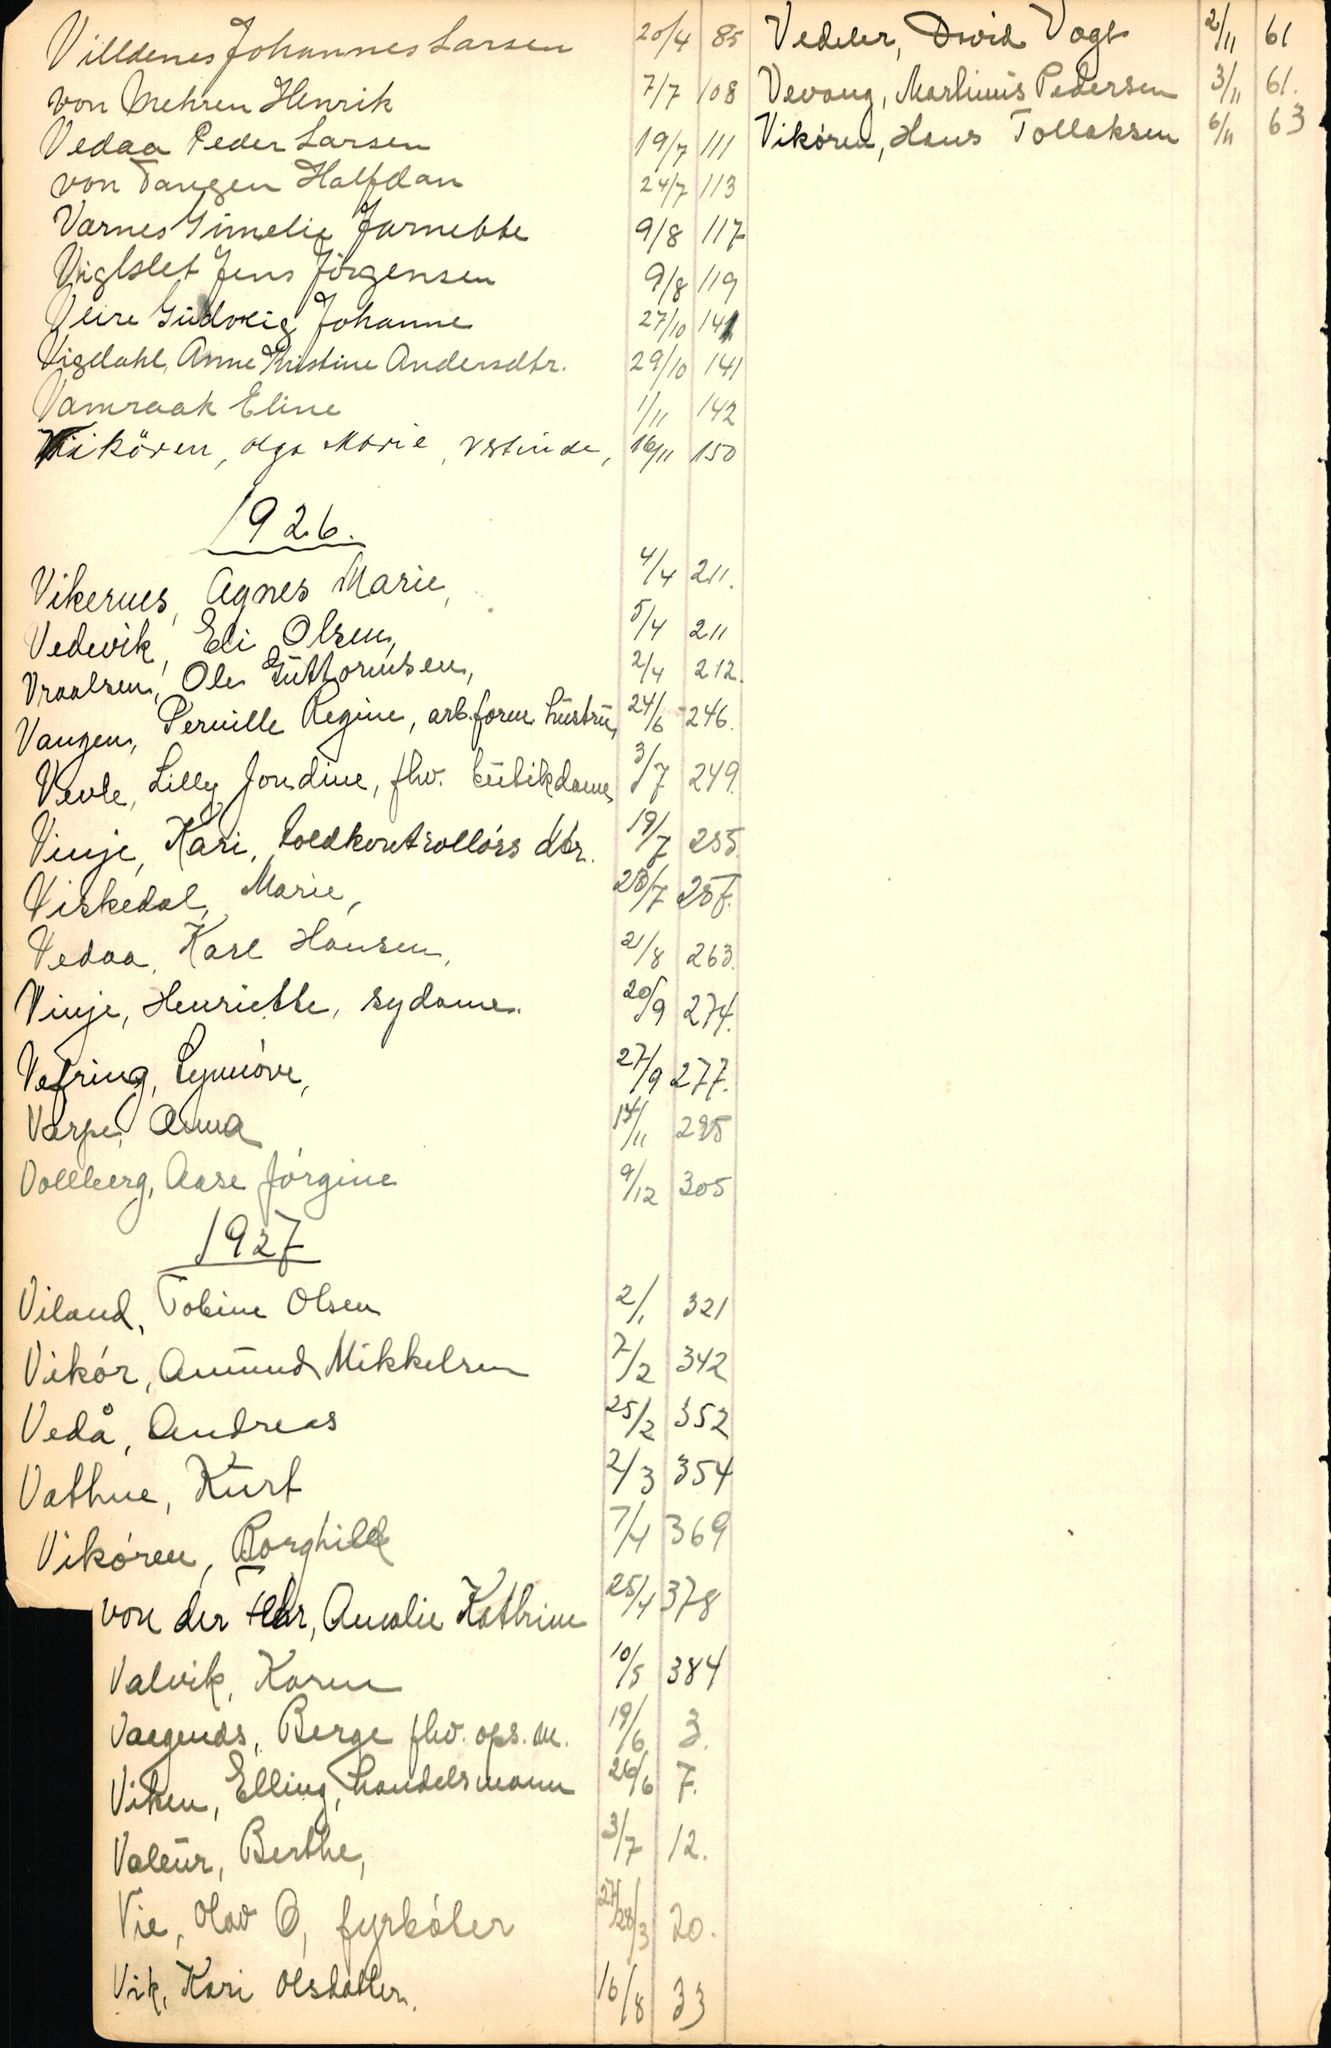 Villdenes Johannes Larsen 20/4 85
von Mehren Henrik 7/7 108
Vedaa Peder Larsen 19/7 111
von Tangen Halfdan 24/7 113
Varnes Gimelie Jarnette 9/8 117
Viglslet Jens Jörgensen 9/8 119
Veire Gudveig Johanne 27/10 141
Vigdahl, Anne Kristine Andersdtr. 29/10 141
Vamraak Eline 1/11 142
Vikören, Olga Marie, 16/11 150
1926.
Vikernes, Agnes Marie, 4/4 211.
Vedvik, Eli Olsen, 5/4 211
Vraalsen, Ole Guttormsen, 2/4 212.
Vangen, Pernille Regine, arb.form. hustru, 24/6 246.
Vevle, Lilly Jondine, fhv. butikdame 3/7 249.
Vinje, Kari, Toldkontrollørs dtr. 19/7 255.
Viskedal, Marie, 28/7
Vedaa, Karl Hansen, 21/8 263.
Vinje, Henriette, sydame. 20/9 274.
Vefring, Synnøve, 27/9 277.
Varpe, Anna 14/11 295
Vollberg, Aase Jørgine 9/12 305
1927
Viland, Tobine Olsen 2/1 321
Vikór, Amund Mikkelsen 7/2 342
Vedå, Andreas 25/2 352
Vathne, Kurt 2/3 354
Vikøren, Borghild 7/4 369
von der Fehr, Amalie Kathrine 25/4 378
Valvik, Karen 10/5 384
Berge fhv. ops.m. 19/6 3.
Viken, Elling, handelsmann 26/6 7.
Valeur, Berthe, 3/7 12.
Vie, Olav O, fyrbøter 20.
Vik, Kari Olsdatter. 16/8 33
Vedeler, David Vogt 2/11 61
Vevang, Martinus Pedersen 3/11 61.
Vikøren, Hans Tollaksen 6/11 63